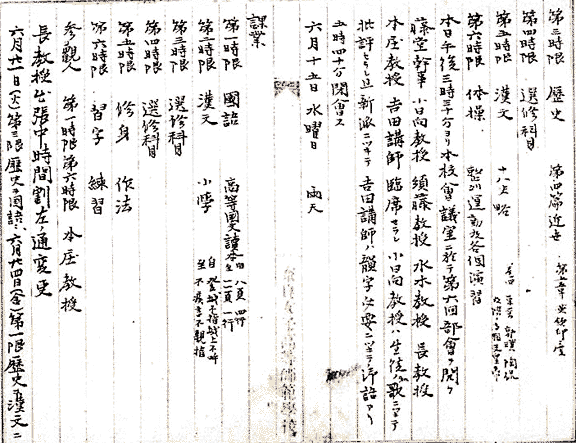 第三時限 歴史 第四篇近世
第四時限 選修科目
第五時限 漢文 十八史略
第六時限 体操 整列運動及各個演習
本日午後三時三十分ヨリ本校會議室ニ於テ第六回部會ヲ開ク
藤堂幹事 小日向教授 須藤教授 水木教授 長教授
本屋教授 吉田講師 臨席セラレ 小日向教授ハ生徒ノ歌ニツキテ
批評セラレ且新派ニツキテ 吉田講師ハ韻字必要ニツキテ御話アリ
五時四十分閉會ス
六月十五日 水曜日 雨天
課業
第一時限 國語 高等國文讀本 自 八頁 四行 至 一一頁 一行
第二時限 漢文 小學 自 登城不指城上不呼 至 不疾言不親指
第三時限 選修科目
第四時限 選修科目
第五時限 修身 作法
第六時限 習字 練習
参観人 第一時限第六時限 本屋教授
長教授出張中時間割左ノ通変更
六月廿一日(火)第三限歴史ヲ國語 六月廿四日(金)第一限歴史ヲ漢文ニ